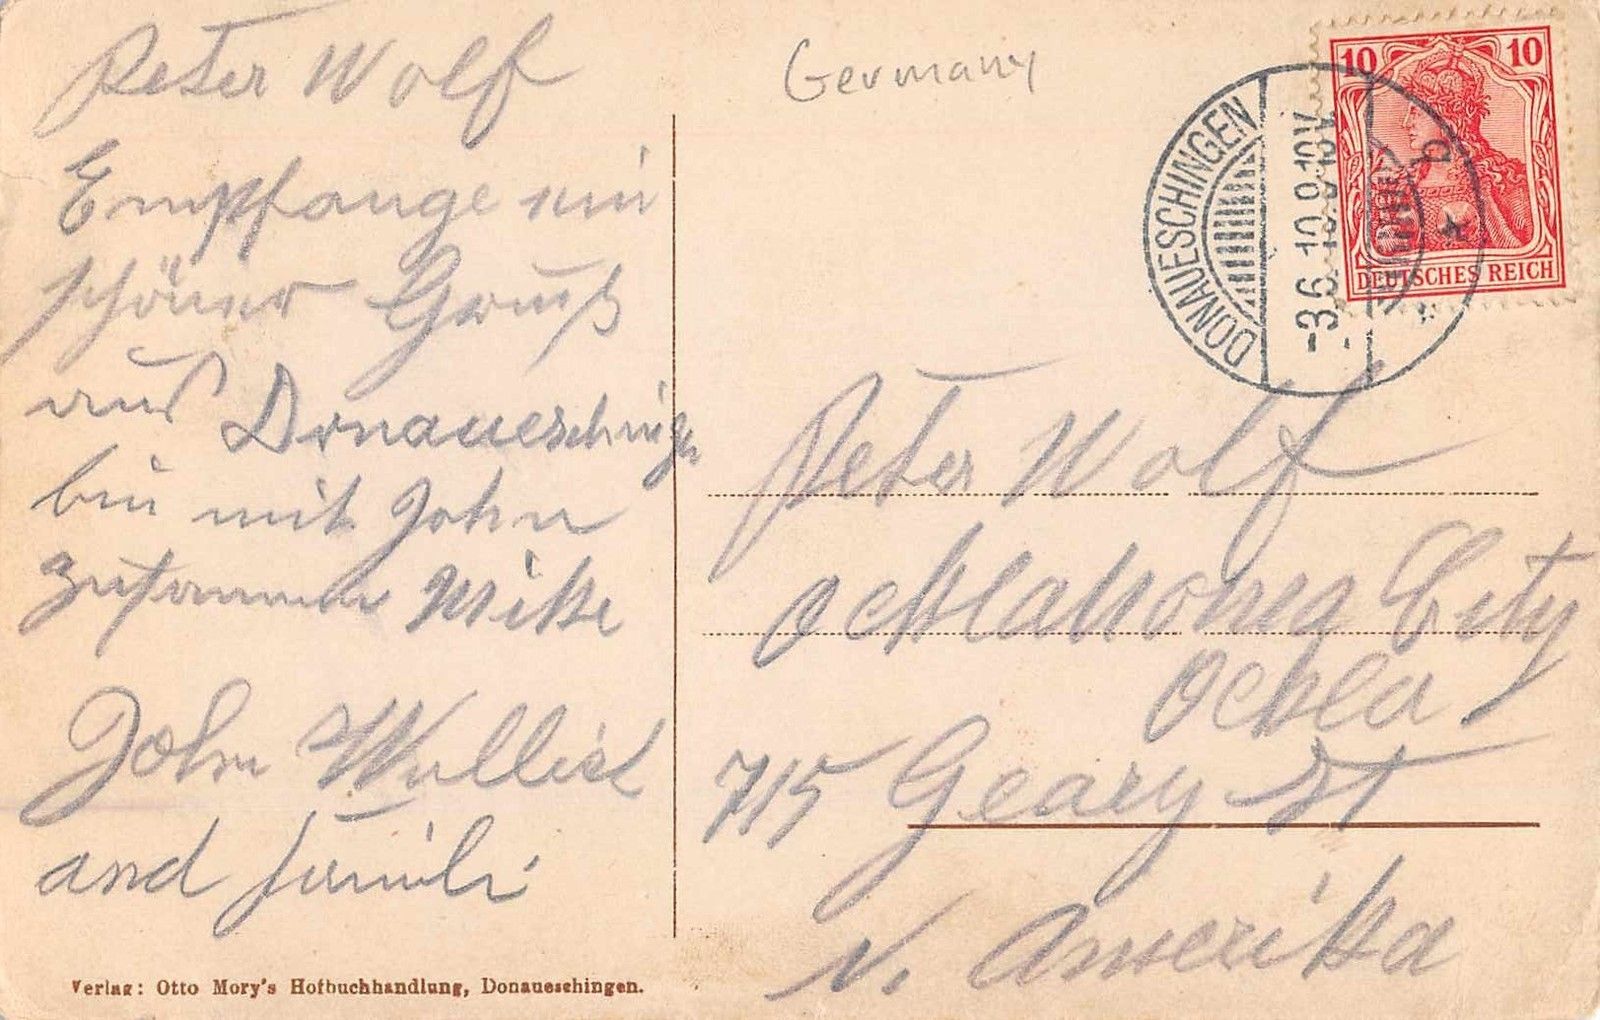 Peter Wolf
Empfange ein
schöner Gruß
aus Donaueschingen
bin mit John
zusammen Mike
John
and famili
Verlag: Otto Mory's Hofbuchhandlung, Donaueschingen.
Germany
10 10
DEUTSCHES REICH
DONAUESCHINGEN
-3.6.10.9-10V.
Peter Wolf
Ocklahoma City
Ockla
715 Geary St
N. Amerika